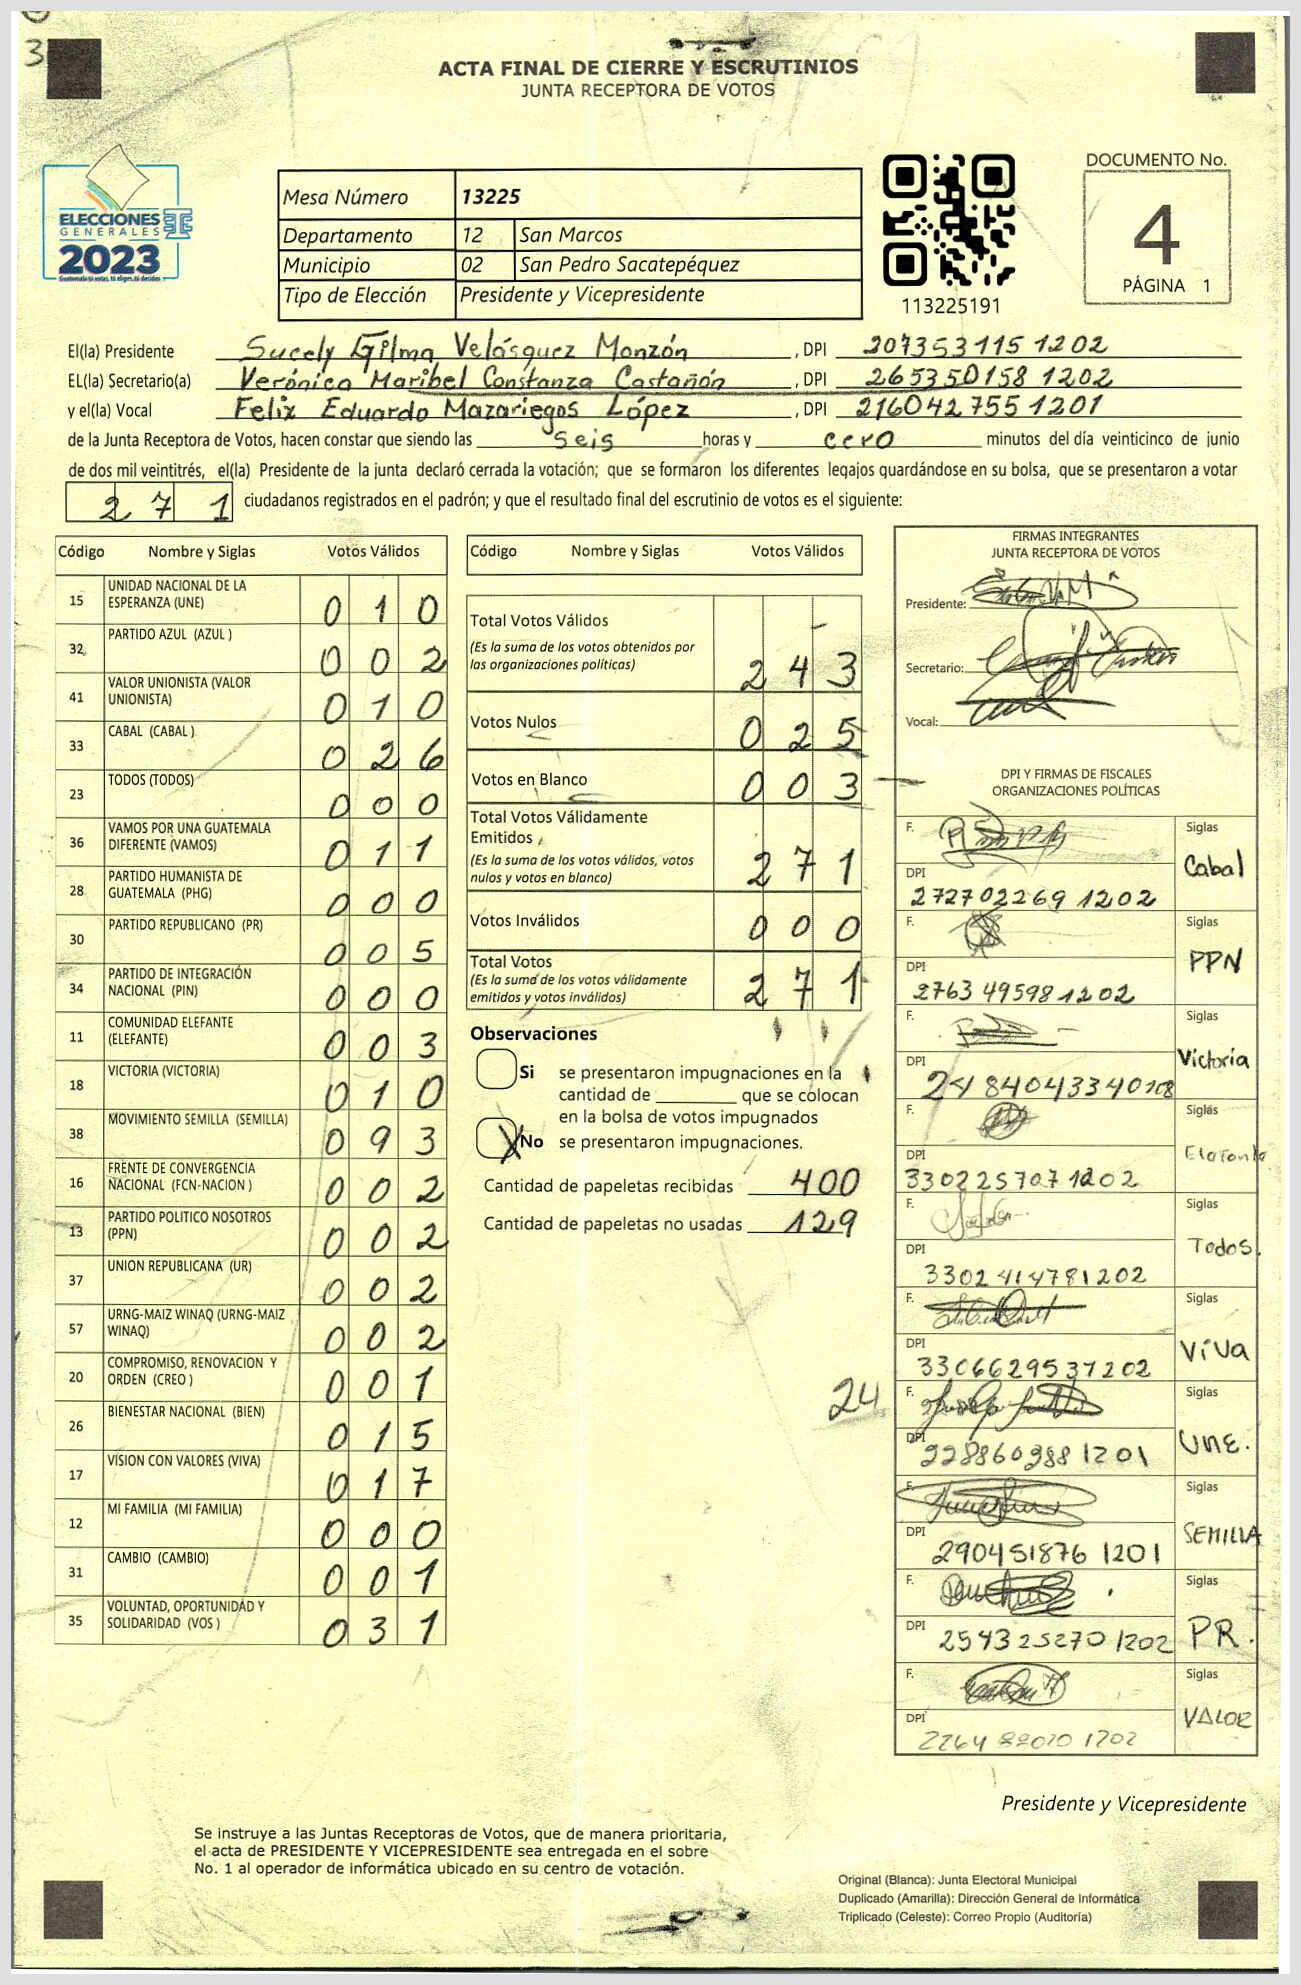 3
ACTA FINAL DE CIERRE Y ESCRUTINIOS
JUNTA RECEPTORA DE VOTOS
ELECCIONES
GENERALES
2023
Mesa Número 13225
Departamento 12 San Marcos
Municipio 02 San Pedro Sacatepéquez
Tipo de Elección Presidente y Vicepresidente
113225191
DOCUMENTO No.
4
PÁGINA 1
El(la) Presidente Sucely Gilma Velásquez Monzón, DPI 207353115 1202
EL(la) Secretario(a) Verónica Maribel Constanza Castañón, DPI 265350158 1202
y el(la) Vocal Felix Eduardo Mazariegos López, DPI 216042755 1201
de la Junta Receptora de Votos, hacen constar que siendo las seis horas y cero minutos del día veinticinco de junio
de dos mil veintitrés, el(la) Presidente de la junta declaró cerrada la votación; que se formaron los diferentes legajos quardándose en su bolsa, que se presentaron a votar
271 ciudadanos registrados en el padrón; y que el resultado final del escrutinio de votos es el siguiente:
Código Nombre y Siglas Votos Válidos
15 UNIDAD NACIONAL DE LA ESPERANZA (UNE) 010
32 PARTIDO AZUL (AZUL ) 002
41 VALOR UNIONISTA (VALOR UNIONISTA) 010
33 CABAL (CABAL ) 026
23 TODOS (TODOS) 000
36 VAMOS POR UNA GUATEMALA DIFERENTE (VAMOS) 011
28 PARTIDO HUMANISTA DE GUATEMALA (PHG) 000
30 PARTIDO REPUBLICANO (PR) 005
34 PARTIDO DE INTEGRACIÓN NACIONAL (PIN) 000
11 COMUNIDAD ELEFANTE (ELEFANTE) 003
18 VICTORIA (VICTORIA) 010
38 MOVIMIENTO SEMILLA (SEMILLA) 093
16 FRENTE DE CONVERGENCIA NACIONAL (FCN-NACION ) 002
13 PARTIDO POLITICO NOSOTROS (PPN) 002
37 UNION REPUBLICANA (UR) 002
57 URNG-MAIZ WINAQ (URNG-MAIZ WINAQ) 002
20 COMPROMISO, RENOVACION Y ORDEN (CREO ) 001
26 BIENESTAR NACIONAL (BIEN) 015
17 VISION CON VALORES (VIVA) 017
12 MI FAMILIA (MI FAMILIA) 000
31 CAMBIO (CAMBIO) 001
35 VOLUNTAD, OPORTUNIDAD Y SOLIDARIDAD (VOS ) 031
Código Nombre y Siglas Votos Válidos
Total Votos Válidos
(Es la suma de los votos obtenidos por
las organizaciones políticas) 243
Votos Nulos 025
Votos en Blanco 003
Total Votos Válidamente
Emitidos
(Es la suma de los votos válidos, votos
nulos y votos en blanco) 271
Votos Inválidos 000
Total Votos
(Es la suma de los votos válidamente
emitidos y votos inválidos) 271
Observaciones
Si se presentaron impugnaciones en la
cantidad de ________ que se colocan
en la bolsa de votos impugnados
X No se presentaron impugnaciones.
Cantidad de papeletas recibidas 400
Cantidad de papeletas no usadas 129
24
FIRMAS INTEGRANTES
JUNTA RECEPTORA DE VOTOS
Presidente:
Secretario:
Vocal:
DPI Y FIRMAS DE FISCALES
ORGANIZACIONES POLÍTICAS
F. Siglas Cabal
DPI 272702269 1202
F. Siglas PPN
DPI 2763 49598 1202
F. Siglas Victoria
DPI 2484043340108
F. Siglas Elefante
DPI 330225707 1202
F. Siglas Todos.
DPI 3302414781202
F. Siglas ViVa
DPI 3306629531202
F. Siglas UNE.
DPI 1201
F. Siglas SEMILLA
DPI 290451876 1201
F. Siglas PR.
DPI 254325270 1202
F. Siglas VALOR
DPI 1202
Presidente y Vicepresidente
Se instruye a las Juntas Receptoras de Votos, que de manera prioritaria,
el acta de PRESIDENTE Y VICEPRESIDENTE sea entregada en el sobre
No. 1 al operador de informática ubicado en su centro de votación.
Original (Blanca): Junta Electoral Municipal
Duplicado (Amarilla): Dirección General de Informática
Triplicado (Celeste): Correo Propio (Auditoría)